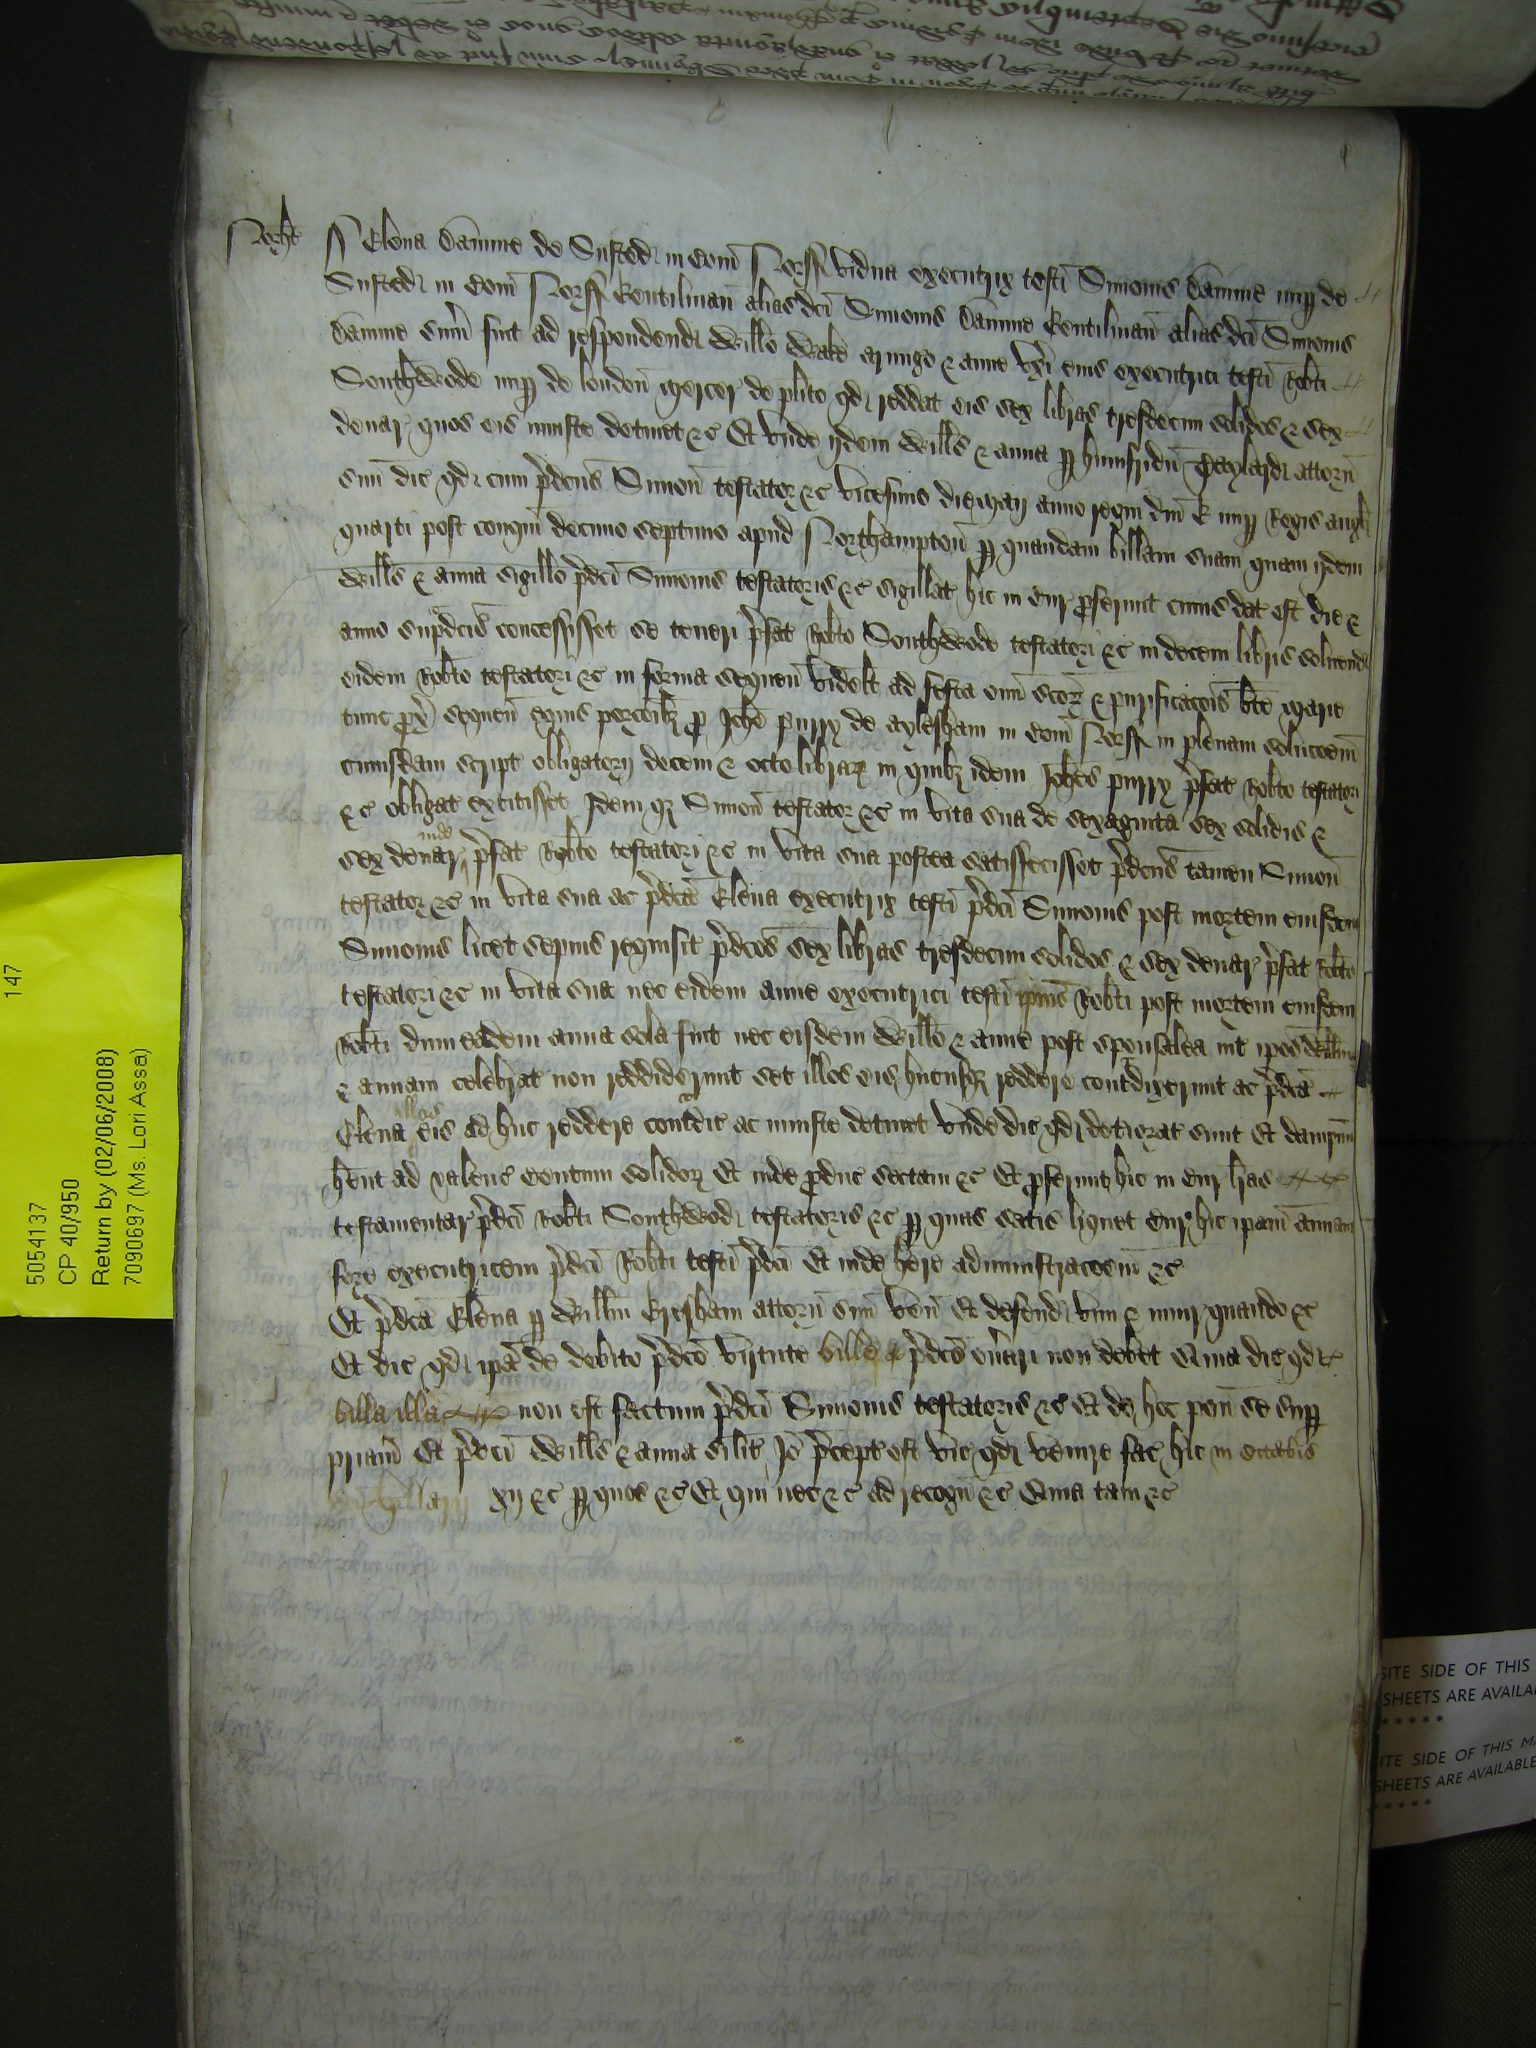 Norht
Elena Damme de Susted in Com Norff vidua executrix testi Simonis Damme nup de
Susted in Com Norff Gentilman alias dci Simonis Damme Gentilman alias dci Simonis
Damme sum fuit ad respondend Willo Wake armigo & Anne uxi eius executrici testi Robti
Southwode nup de london mercer de plito qd reddat eis sex libras tresdecim solidos & sex
denar quos eis iniuste detinet &c Et unde ijdem Wills & Anna p humfridu Gaylard attorn
suu dic qd cum pdcus Simon testator &c vicesimo die maij anno regni dni E nup Regis angl
quarti post conqm decimo septimo apud Northampton p quandam billam suam quam ijdem
Wills & Anna sigillo pdci Simonis testatoris &c sigillat hic in Cur pferunt cuius dat est die &
anno supdcis concessisset se teneri pfat Robto Southwode testatori &c in decem libris solvend
eidem Robto testatori &c in forma sequen videlt ad festa omi scor & purificacois bte marie
tunc px sequen equis porcoibz p Iohe purry de aylesham in Com Norff in plenam solucoem
cuiusdam script obligatorij decem & octo librar in quibz idem Iohes purry pfat Robto testatori
&c obligat extitisset Idem qz Simon testator &c in vita sua de sexaginta sex solidis &
sex denar inde pfat Robto testatori &c in vita sua postea satisfecisset pdcus tamen Simon
testator &c in vita sua ac pdca Elena executrix testi pdci Simonis post mortem eiusdem
Simonis licet sepius requisit pdcos sex libras tresdecim solidos & sex denar pfat Robto
testatori &c in vita sua nec eidem Anne executrici testi ipius Robti post mortem eiusdem
Robti dum eadem Anna sola fuit nec eisdem Willo & Anne post sponsalia int ipos Willm
& Annam celebrat non reddiderunt set illos eis hucusqz reddere contdixerunt ac pdca
Elena illos eis adhuc reddere contdic ac iniuste detinet Unde dic qd detiorat sunt Et dampnu
hent ad valenc Centum solidor Et inde pduc sectam &c Et pferunt hic in Cur lras
testamentar pdci Robti Southwod testatoris &c p quas satis liquet Cur hic ipam Annam
fore executricem pdci Robti testi pdci Et inde here administracoem &c
Et pdca Elena p Willm Gresham attorn suu ven Et defend vim & iniur quando &c
Et dic qd ipa de debito pdco virtute bille pdce onari non debet Quia dic qd
billa illa non est factum pdci Simonis testatoris &c Et de hoc pon se sup
priam Et pdci Wills & Anna silit Io pcept est vic qd venire fac hic in octabis
sci Hillarij xij &c p quos &c Et qui nec &c ad recogn &c Quia tam &c
147
5054137
CP 40/950
Return by (02/06/2008)
7090697 (Ms. Lori Assa)
SITE SIDE OF THIS
SHEETS ARE AVAILA
*****
SITE SIDE OF THIS MA
SHEETS ARE AVAILABLE
*****